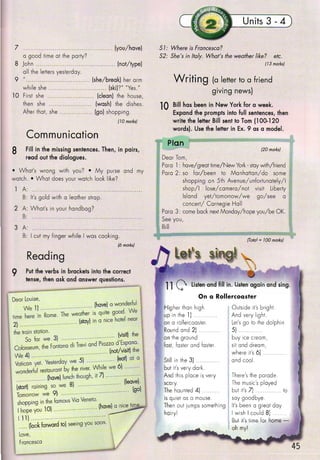 Units 3 - 4
2
7 ........ (you/have)
a good time at the party?
8 John ........ (not/type)
all the letters yesterday.
9 " ........ (she/break) her arm
while she ........ (ski)?" "Yes."
10 First she ........ (clean) the house,
then she ........ (wash) the dishes.
After that, she ........ (go) shopping.
(12 marks)
Communication
8 Fill in the missing sentences. Then, in pairs,
read out the dialogues.
• What's wrong with you? • My purse and my
watch. • What does your watch look like?
1 A: ........
B: It's gold with a leather strap.
2 A: What's in your handbag?
B: ........
3 A: ........
B: I cut my finger while I was cooking.
(6 marks)
Reading
9 Put the verbs in brackets into the correct
tense, then ask and answer questions.
Dear Louise,
We 1) ........ (have) a wonderful
time here in Rome. The weather is quite good. We
2) ........ (stay) in a nice hotel near
the train station.
So far we 3) ........ (visit) the
Colosseum, the Fontana di Trevi and Piazza d'Espana.
We 4) ........ (not/visit) the
Vatican yet. Yesterday we 5) ........ (eat) at a
wonderful restaurant by the river. While we 6) ........
........ (have) lunch though, it 7) ........
(start) raining so we 8) ........ (leave).
Tomorrow we 9) ........ (go)
shopping in the famous Via Veneto.
I hope you 10) ........ (have) a nice time.
I 11) ........
........ (look forward to) seeing you soon.
Love,
Francesca
S1: Where is Francesca?
S2: She's in Italy. What's the weather like? etc.
(13 marks)
Writing (a letter to a friend
giving news)
10 Bill has been in New York for a week.
Expand the prompts into full sentences, then
write the letter Bill sent to Tom (100-120
words). Use the letter in Ex. 9 as a model.
Plan
(20 marks)
Dear Tom,
Para 1: have/great time/New York - stay with/friend
Para 2: so far/been to Manhattan/do some
shopping on 5th Avenue/unfortunately/I
shop/I lose/camera/not visit Liberty
Island yet/tomorrow/we go/see a
concert/ Carnegie Hall
Para 3: come back next Monday/hope you/be OK.
See you,
Bill
(Total = 100 marks)
Let's sing!
11 Listen and fill in. Listen again and sing.
On a Rollercoaster
Higher than high
up in the 1) ........
on a rollercoaster.
Round and 2) ........
on the ground
fast, faster and faster.
Still in the 3) ........
but it's very dark.
And this place is very
scary.
The haunted 4) ........
is quiet as a mouse
Then out jumps something
hairy!
Outside it's bright.
And very light.
Let's go to the dolphin
5) ........
buy ice cream,
sit and dream,
where it's 6) ........
and cool.
There's the parade.
The music's played
but it's 7) ........ to
say goodbye.
It's been a great day
I wish I could 8) ........
But it's time for home —
oh my!
45